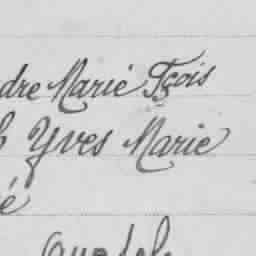 dre Marie Fçois
Yves Marie
é